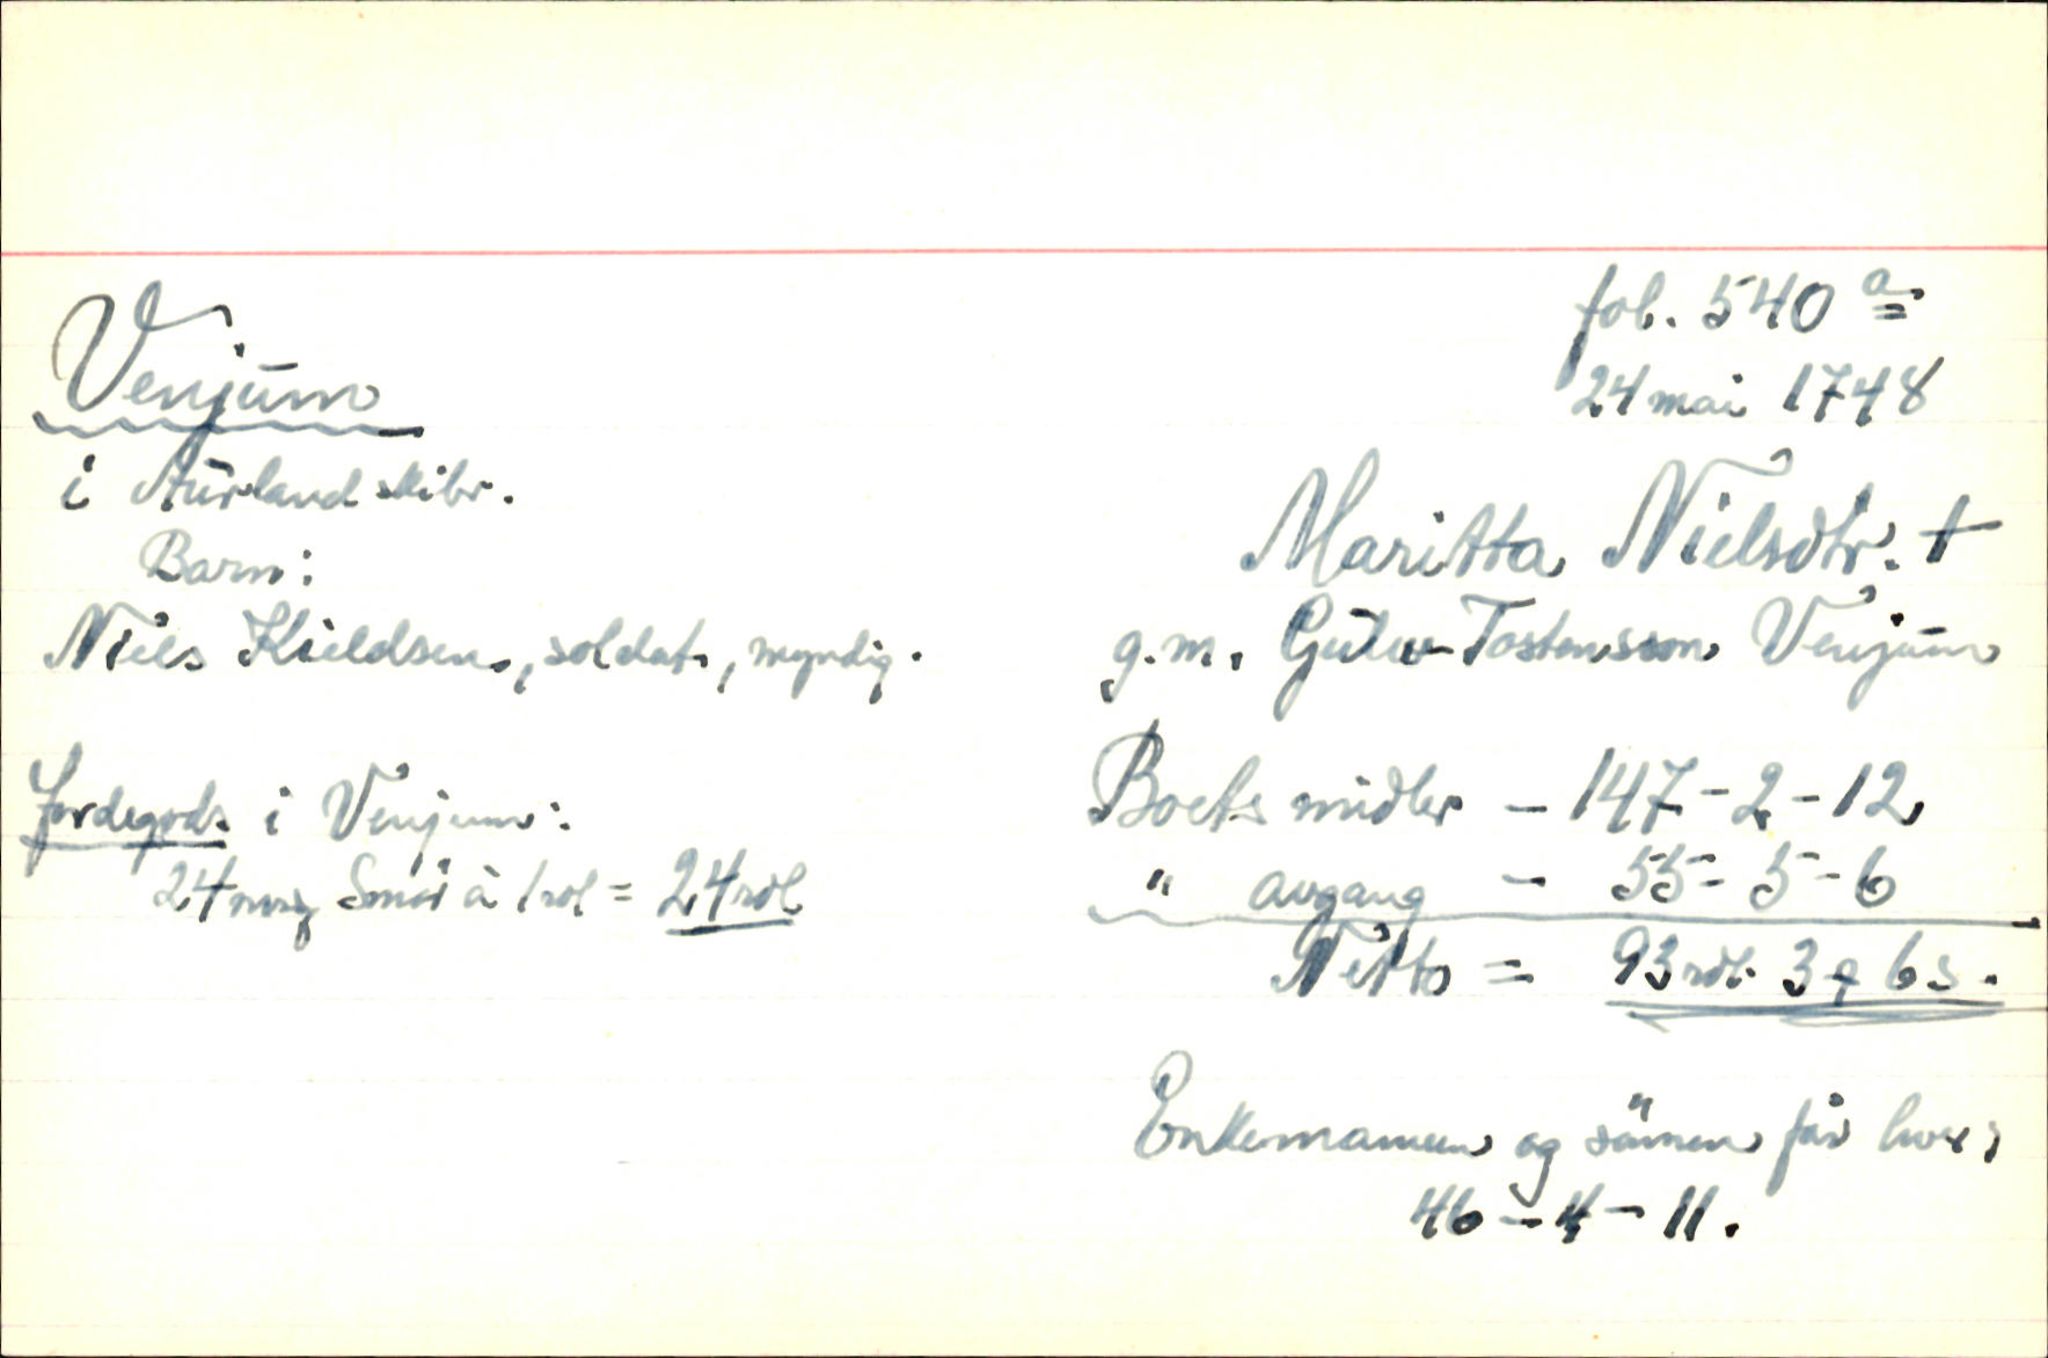 fol. 540 a
24 mai 1748
Venjum
i Aurland skibr.
Barn:
Niels Kieldsen, soldat, myndig.
Jordegods i Venjum:
24 mrk Smör à 1 rdl = 24 rdl
Maritta Nielsdtr. †
g.m. Gulw Tostensson Venjum
Boets midler - 147 - 2 - 12
" avgang - 55 - 5 - 6
Netto = 93 rdl. 3 q 6 s.
Enkemannen og sönnen får hver:
46 - 4 - 11.